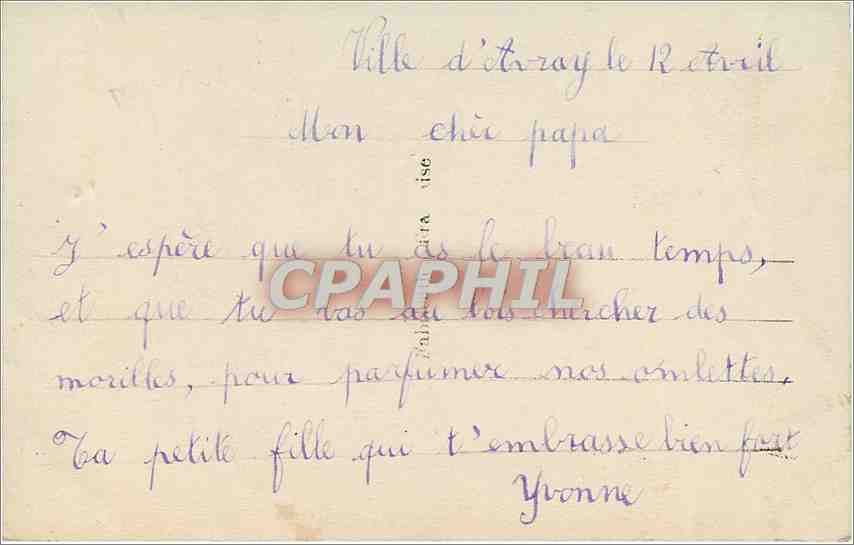 Ville d'Avray le 12 Avril
Mon chèr papa
J'espère que tu as le beau temps,
et que tu vas au bois chercher des
morilles, pour parfumer nos omlettes.
Ta petite fille qui t'embrasse bien fort
Yvonne
CPAPHIL